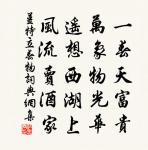 一春天富貴
萬象物光華
遙想西湖上
風流賣酒家
姜特立春物詞典網集